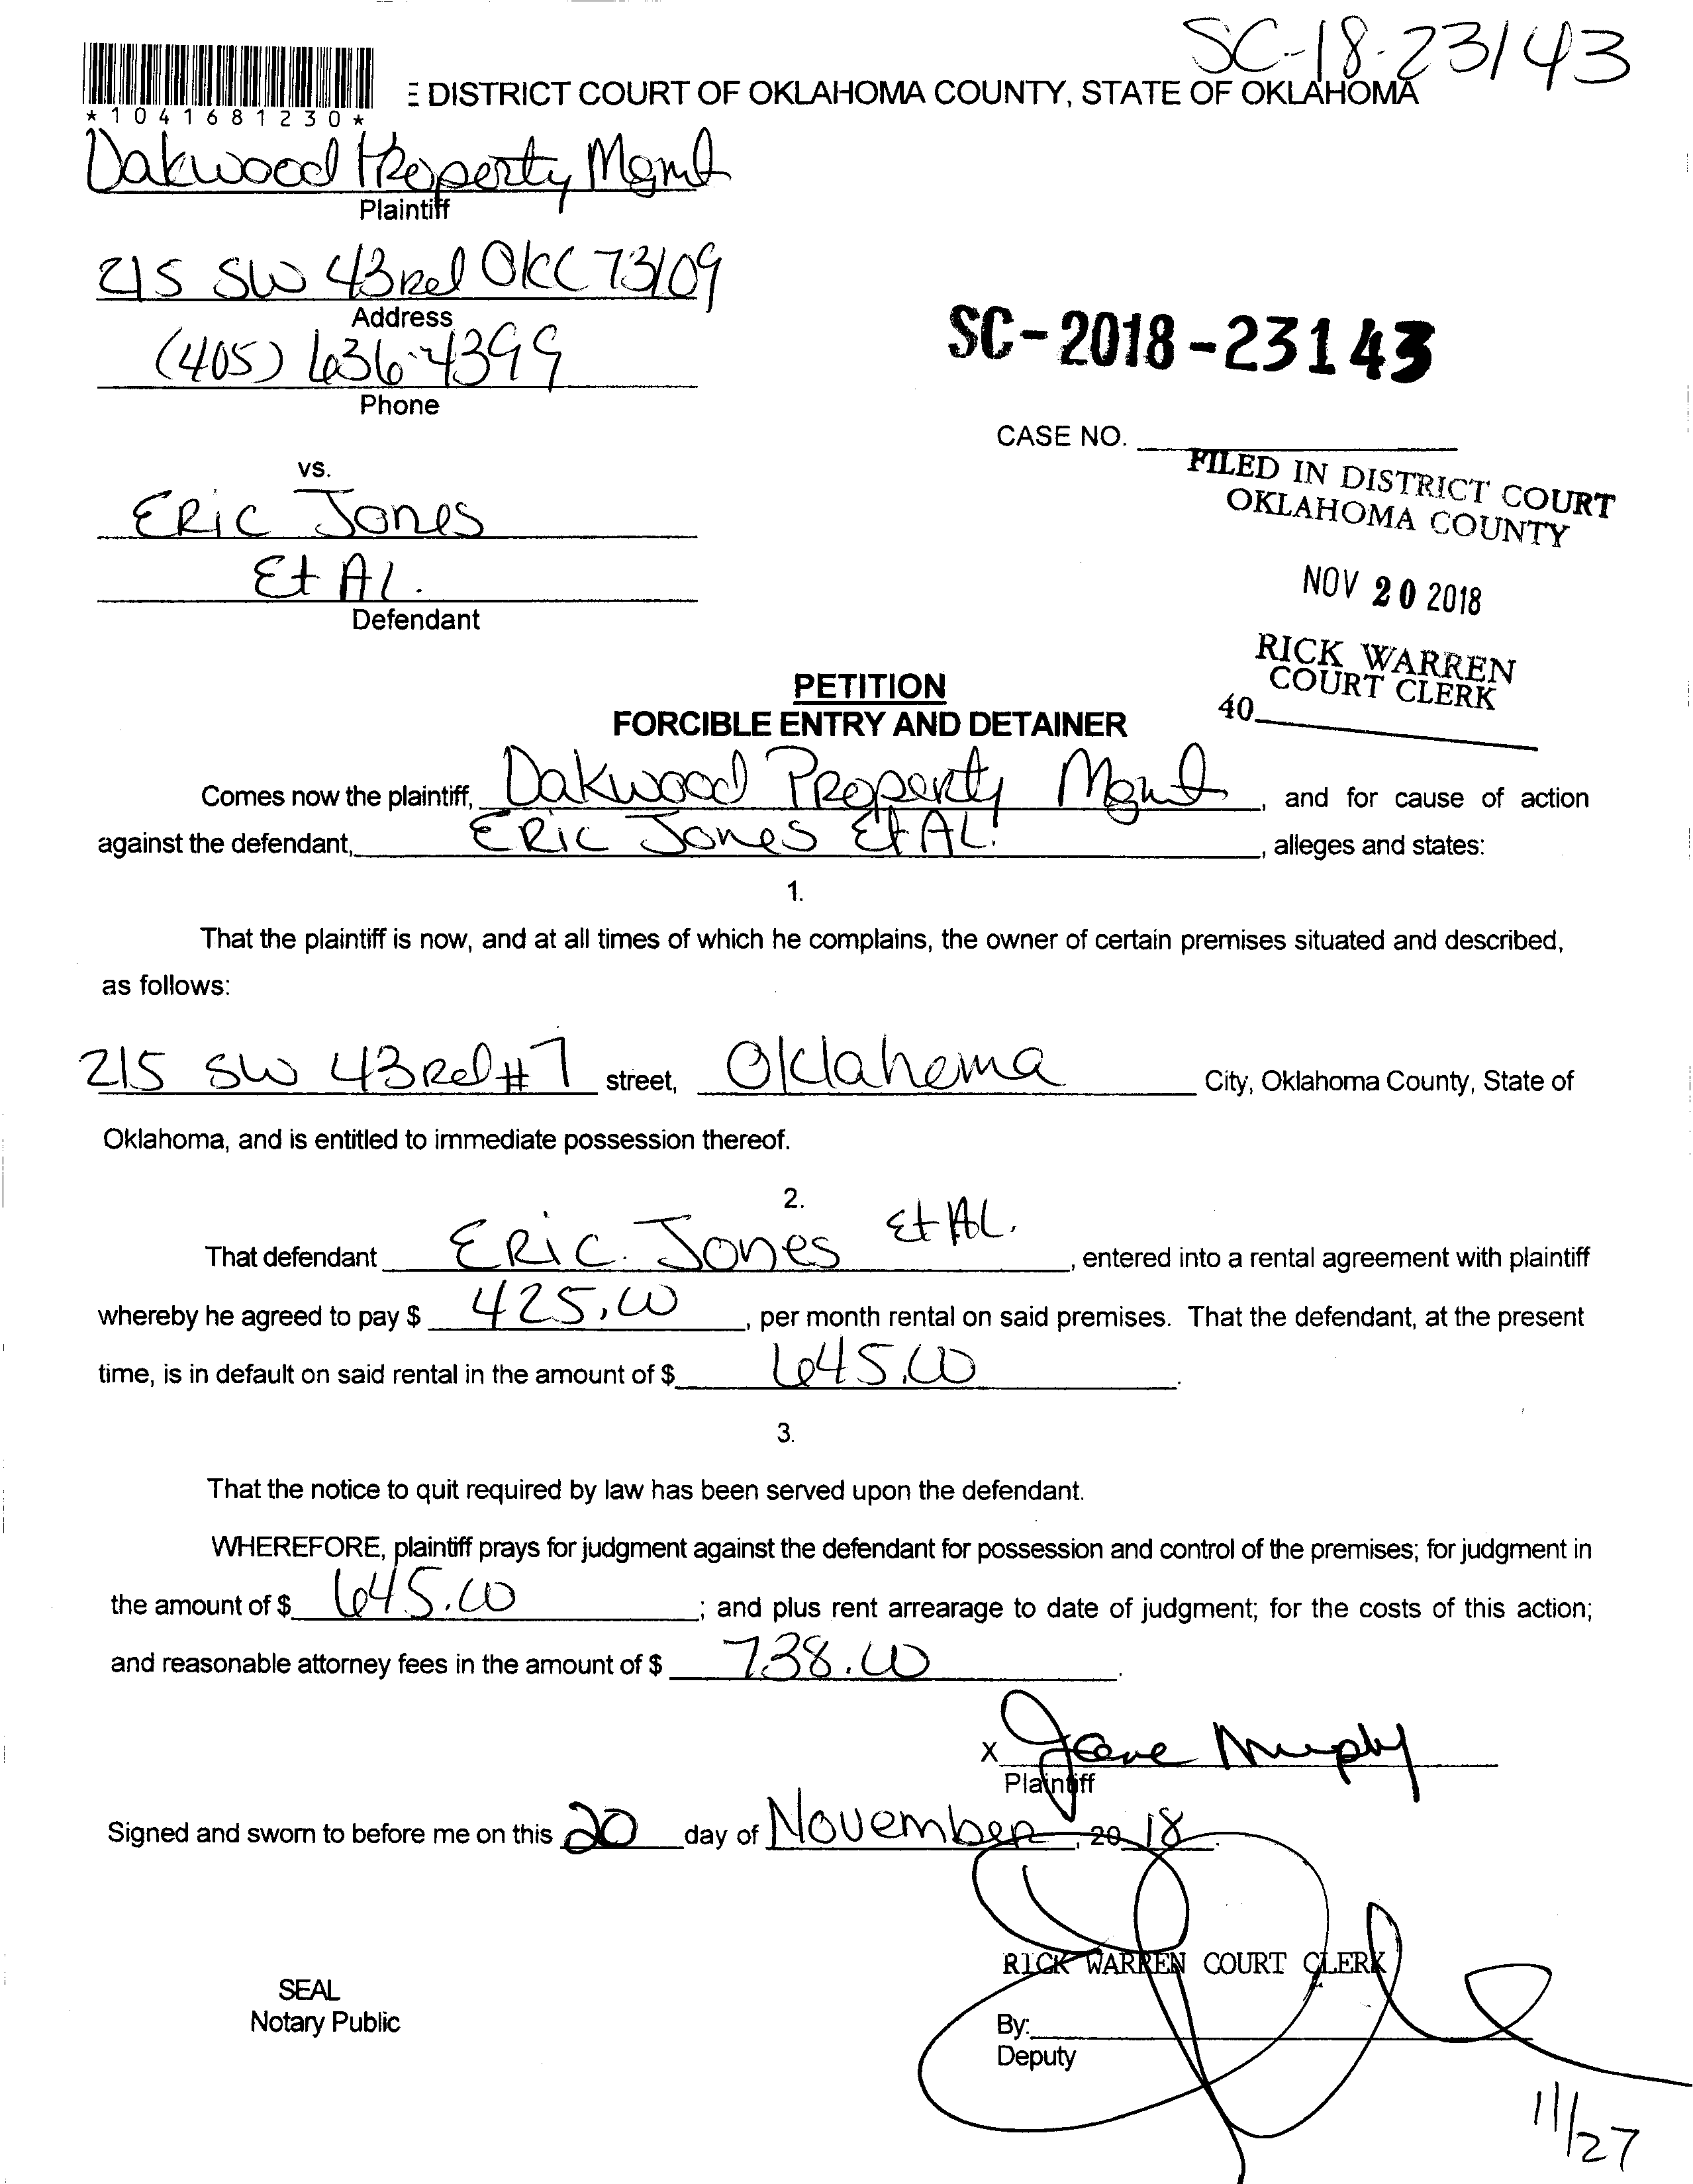 SC-18-23143
E DISTRICT COURT OF OKLAHOMA COUNTY, STATE OF OKLAHOMA
*1041681230*
Oakwood Property Mgmt
Plaintiff
215 SW 43rd OKC 73109
Address
(405) 636-4399
Phone
SC-2018-23143
CASE NO.
vs.
FILED IN DISTRICT COURT
OKLAHOMA COUNTY
Eric Jones
Et Al.
Defendant
NOV 20 2018
RICK WARREN
COURT CLERK
40
PETITION
FORCIBLE ENTRY AND DETAINER
Comes now the plaintiff, Oakwood Property Mgmt, and for cause of action
against the defendant, Eric Jones Et AL., alleges and states:
1.
That the plaintiff is now, and at all times of which he complains, the owner of certain premises situated and described,
as follows:
215 SW 43rd #7 street, Oklahoma City, Oklahoma County, State of
Oklahoma, and is entitled to immediate possession thereof.
2.
That defendant Eric Jones Et AL., entered into a rental agreement with plaintiff
whereby he agreed to pay $ 425.00, per month rental on said premises. That the defendant, at the present
time, is in default on said rental in the amount of $ 645.00.
3.
That the notice to quit required by law has been served upon the defendant.
WHEREFORE, plaintiff prays for judgment against the defendant for possession and control of the premises; for judgment in
the amount of $ 645.00; and plus rent arrearage to date of judgment; for the costs of this action;
and reasonable attorney fees in the amount of $ 738.00.
x Murphy
Plaintiff
Signed and sworn to before me on this 20 day of November, 2018.
RICK WARREN COURT CLERK
SEAL
Notary Public
By:
Deputy
11/27